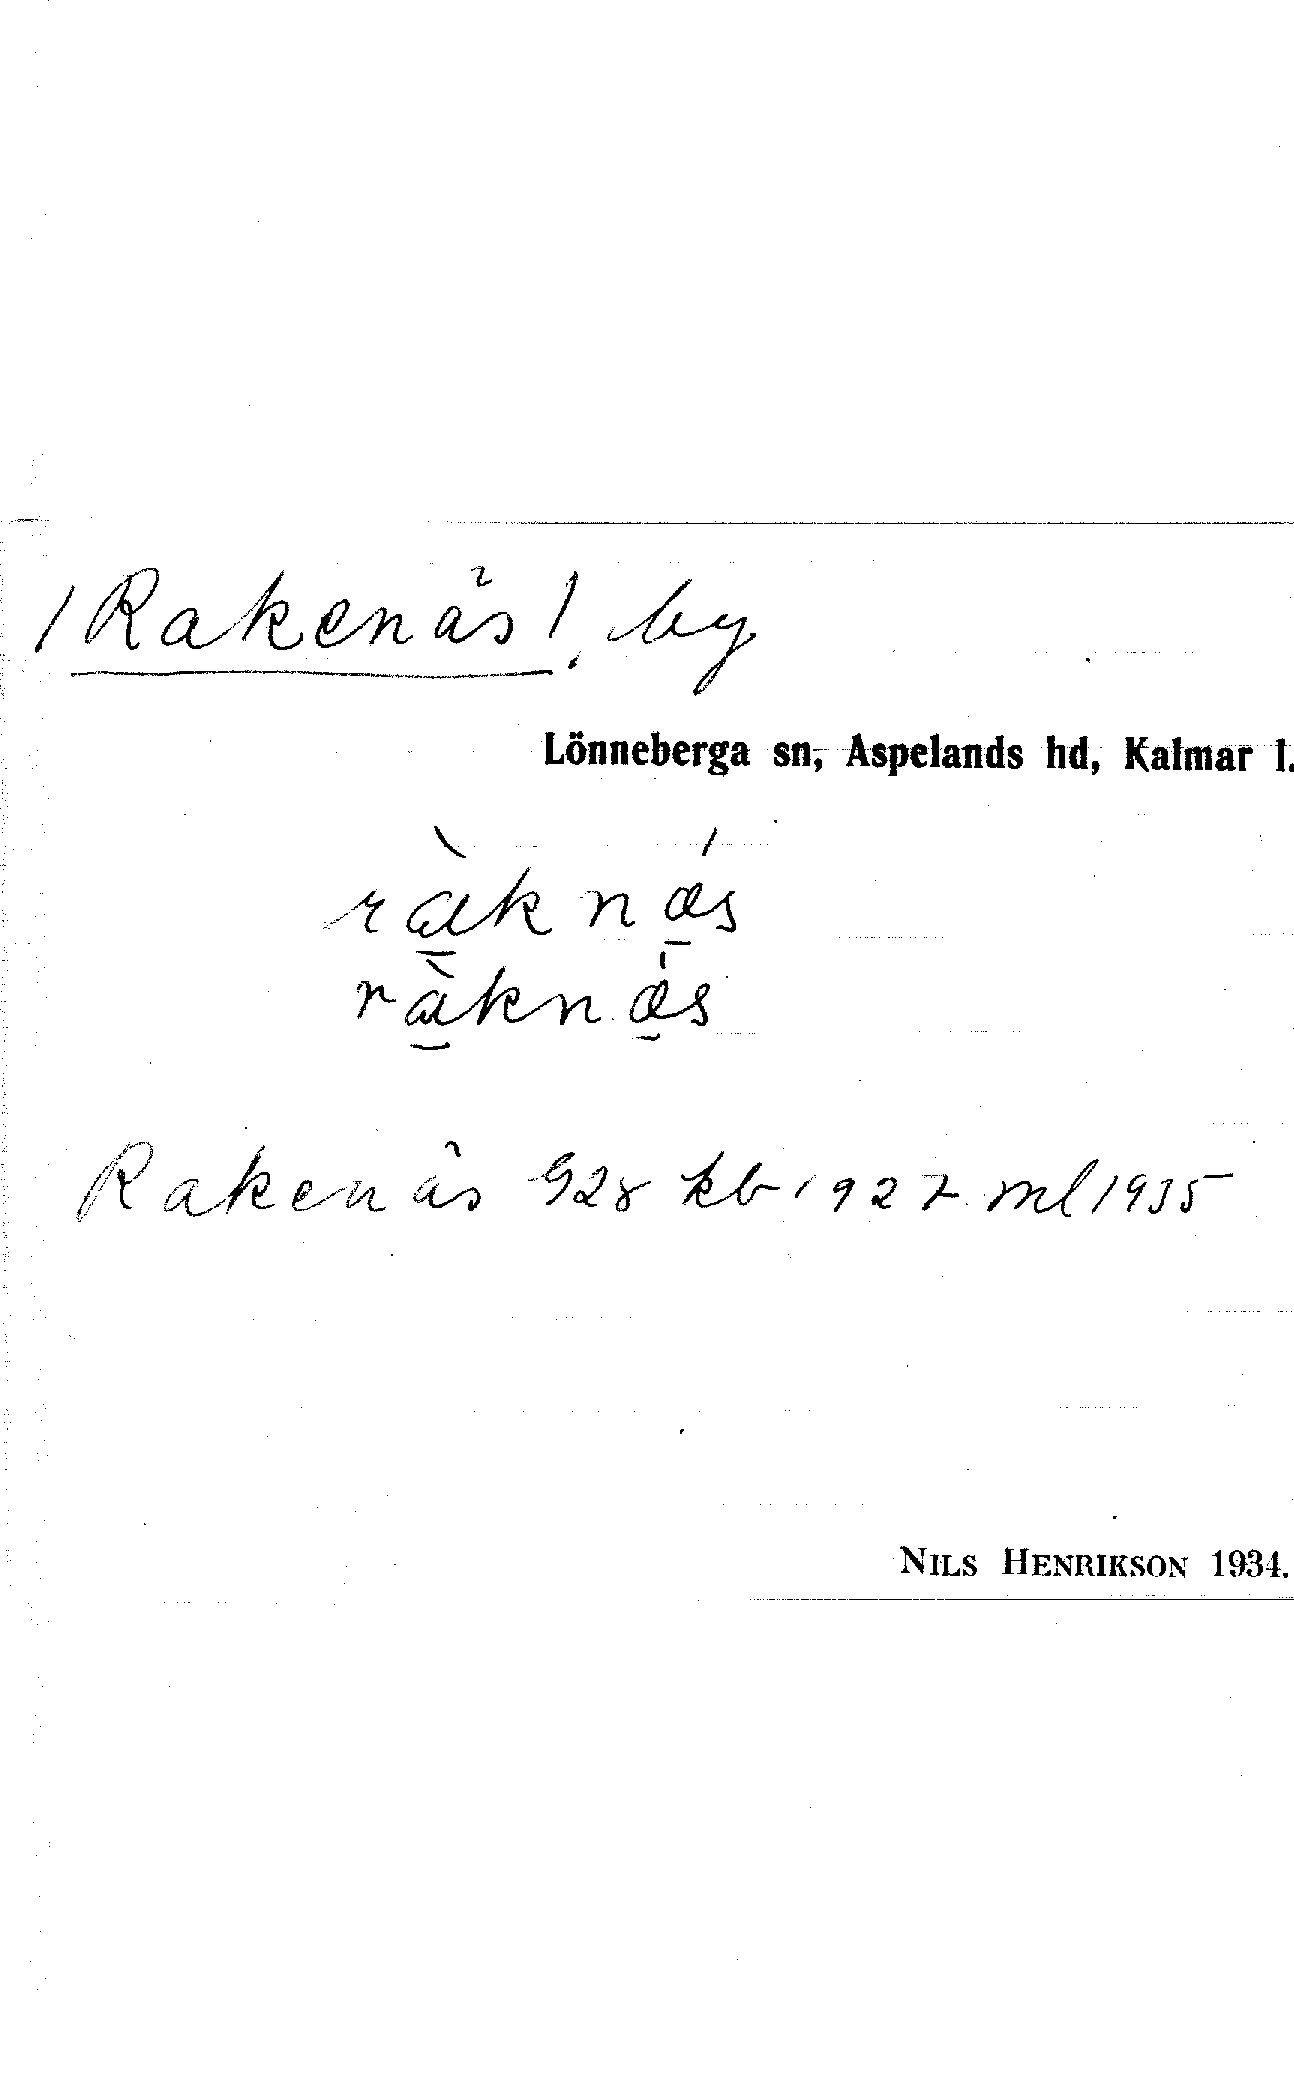 /Rakenäs/, by
Lönneberga sn, Aspelands hd, Kalmar l.
rὰknǽs
rὰknǽs
Rakenäs G28 kb 1927 ml 1935
NILS HENRIKSON 1934.